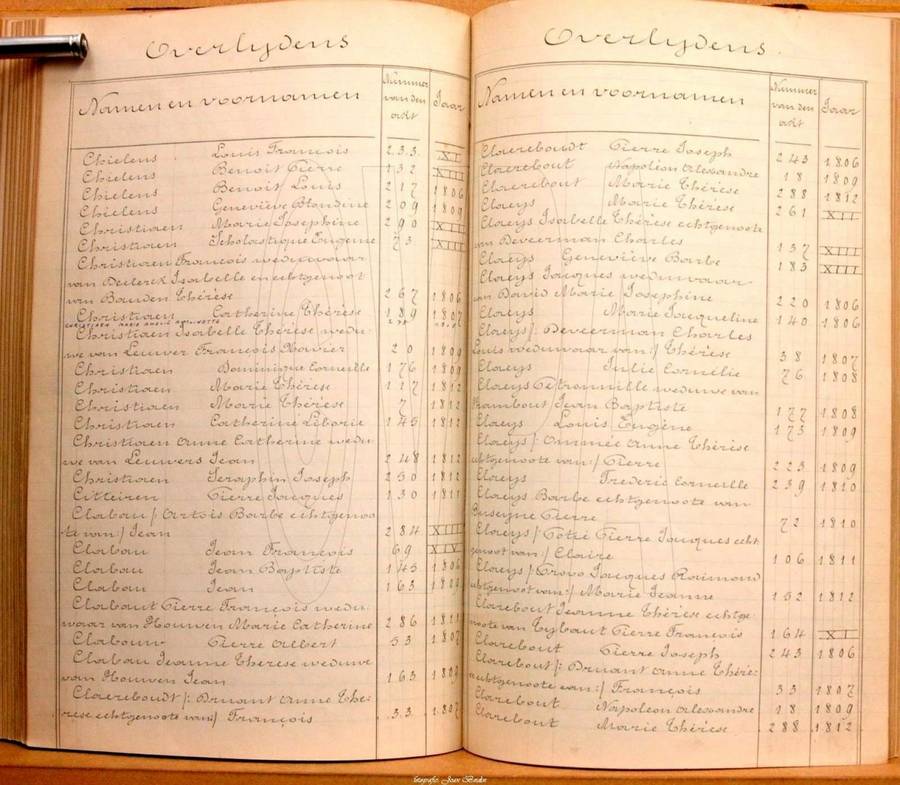 Overlydens
Namen en voornamen Nummer van den acte Jaar
Chielens Louis François 233 XI
Chielens Benoit Pierre 132 XIII
Chielens Benoit Louis 217 1806
Chielens Geneviève Blondine 209 1809
Christiaen Marie Josephine 290 XII
Christiaen Scholastique Eugenie 73 XIII
Christiaen François weduwaar
van Deiterck Isabelle en echtgenoot
van Bauden Thérèse 267 1806
Christiaen Catherine Thérèse 189 1807
Christiaen Isabelle Thérèse wedu-
we van Leuwer François Xavier 20 1809
Christiaen Dominique Corneille 176 1809
Christiaen Marie Thérèse 117 1812
Christiaen Marie Thérèse 7 1812
Christiaen Catherine Liborie 145 1812
Christiaen Anne Catherine wedu-
we van Leuwers Jean 248 1812
Christiaen Seraphin Joseph 250 1812
Citteiren Pierre Jacques 130 1811
Clabau /: Artois Barbe echtgenoo-
te van:/ Jean 284 XIII
Clabau Jean François 69 XIV
Clabau Jean Baptiste 145 1806
Clabau Jean 163 1809
Clabaut Pierre François wedu-
waar van Houwen Marie Catherine 286 1811
Clabouw Pierre Albert 53 1807
Clabau Jeanne Therese weduwe
van Houwen Jean 163 1809
Claereboudt /: Druant Anne Thé-
rese echtgenoote van:/ François 33 1807
Overlydens
Namen en voornamen Nummer van den acte Jaar
Claereboudt Pierre Joseph 243 1806
Claerebout Napoléon Alexandre 18 1809
Claerebout Marie Thérèse 288 1812
Claeys Marie Thérèse 261 XII
Claeys Isabelle Thérèse echtgenoote
van Deveerman Charles 137 XIII
Claeys Geneviève Barbe 183 XIII
Claeys Jacques weduwaar
van David Marie Josephine 220 1806
Claeys Marie Jacqueline 140 1806
Claeys /: Deveerman Charles
Louis weduwaar van:/ Thérèse 38 1807
Claeys Julie Cornélie 76 1808
Claeys Petronnille weduwe van
Rambout Jean Baptiste 177 1808
Claeys Louis Eugène 173 1809
Claeys /: Ommée Anne Thérèse
echtgenoote van:/ Pierre 223 1809
Claeys Frederic Corneille 239 1810
Claeys Barbe echtgenoote van
Buseyne Pierre 72 1810
Claeys /: Poté Pierre Jacques echt-
genoot van:/ Claire 106 1811
Claeys /: Provo Jacques Raimond
echtgenoot van:/ Marie Jeanne 152 1812
Clarebout Jeanne Thérèse echtge-
noote van Tybaut Pierre François 164 XI
Clarebout Pierre Joseph 243 1806
Clarebout /: Druant Anne Thérè-
echtgenoot van:/ François 33 1807
Clarebout Napoleon Alexandre 18 1809
Clarebout Marie Thérèse 288 1812
fotografie: Joan Boudin